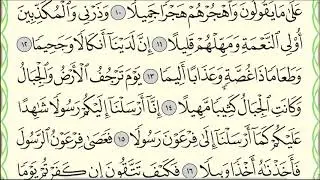 عَلَىٰ مَا يَقُولُونَ وَٱهْجُرْهُمْ هَجْرًا جَمِيلًا ١٠ وَذَرْنِي وَٱلْمُكَذِّبِينَ
أُو۟لِي ٱلنَّعْمَةِ وَمَهِّلْهُمْ قَلِيلًا ١١ إِنَّ لَدَيْنَآ أَنكَالًا وَجَحِيمًا ١٢
وَطَعَامًا ذَا غُصَّةٍ وَعَذَابًا أَلِيمًا ١٣ يَوْمَ تَرْجُفُ ٱلْأَرْضُ وَٱلْجِبَالُ
وَكَانَتِ ٱلْجِبَالُ كَثِيبًا مَّهِيلًا ١٤ إِنَّآ أَرْسَلْنَآ إِلَيْكُمْ رَسُولًا شَٰهِدًا
عَلَيْكُمْ كَمَآ أَرْسَلْنَآ إِلَىٰ فِرْعَوْنَ رَسُولًا ١٥ فَعَصَىٰ فِرْعَوْنُ ٱلرَّسُولَ
فَأَخَذْنَٰهُ أَخْذًا وَبِيلًا ١٦ فَكَيْفَ تَتَّقُونَ إِن كَفَرْتُمْ يَوْمًا